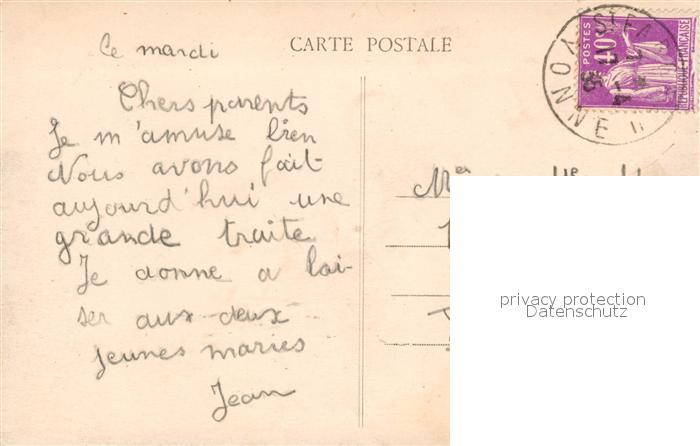 Ce mardi
CARTE POSTALE
POSTES
40
RÉPUBLIQUE FRANÇAISE
YONNE
Chers parents
Je m'amuse bien
Nous avons fait
aujourd'hui une
grande traite
Je donne a bai-
ser aux deux
jeunes maries
Jean
Mr
privacy protection
Datenschutz